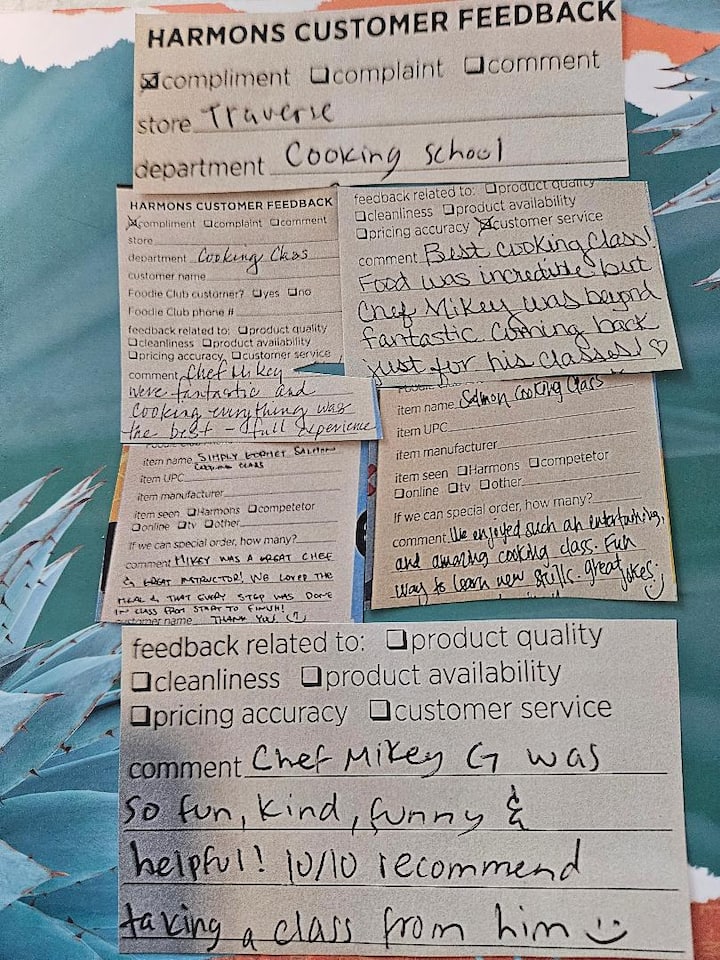 HARMONS CUSTOMER FEEDBACK
☒compliment ☐complaint ☐comment
store Traverse
department Cooking School
HARMONS CUSTOMER FEEDBACK
☒compliment ☐complaint ☐comment
store
department Cooking Class
customer name
Foodie Club customer? ☐yes ☐no
Foodie Club phone #
feedback related to: ☐product quality
☐cleanliness ☐product availability
☐pricing accuracy ☐customer service
comment Chef Mikey
were fantastic and
cooking everything was
the best - full experience
feedback related to: ☐product quality
☐cleanliness ☐product availability
☐pricing accuracy ☒customer service
comment Best cooking Class!
Food was incredible but
Chef Mikey was beyond
fantastic. Coming back
just for his classes! ♡
item name SIMPLY GORMET SALMON
COOKING CLASS
item UPC
item manufacturer
item seen ☐Harmons ☐competetor
☐online ☐tv ☐other
If we can special order, how many?
comment MIKEY WAS A GREAT CHEF
& GREAT INSTRUCTOR! WE LOVED THE
MEAL & THAT EVERY STEP WAS DONE
IN CLASS FROM START TO FINISH!
customer name THANK YOU
item name Salmon Cooking Class
item UPC
item manufacturer
item seen ☐Harmons ☐competetor
☐online ☐tv ☐other
If we can special order, how many?
comment We enjoyed such an entertaining,
and amazing cooking class. Fun
way to learn new skills. great jokes :)
feedback related to: ☐product quality
☐cleanliness ☐product availability
☐pricing accuracy ☐customer service
comment Chef Mikey G was
so fun, kind, funny &
helpful! 10/10 recommend
taking a class from him :)